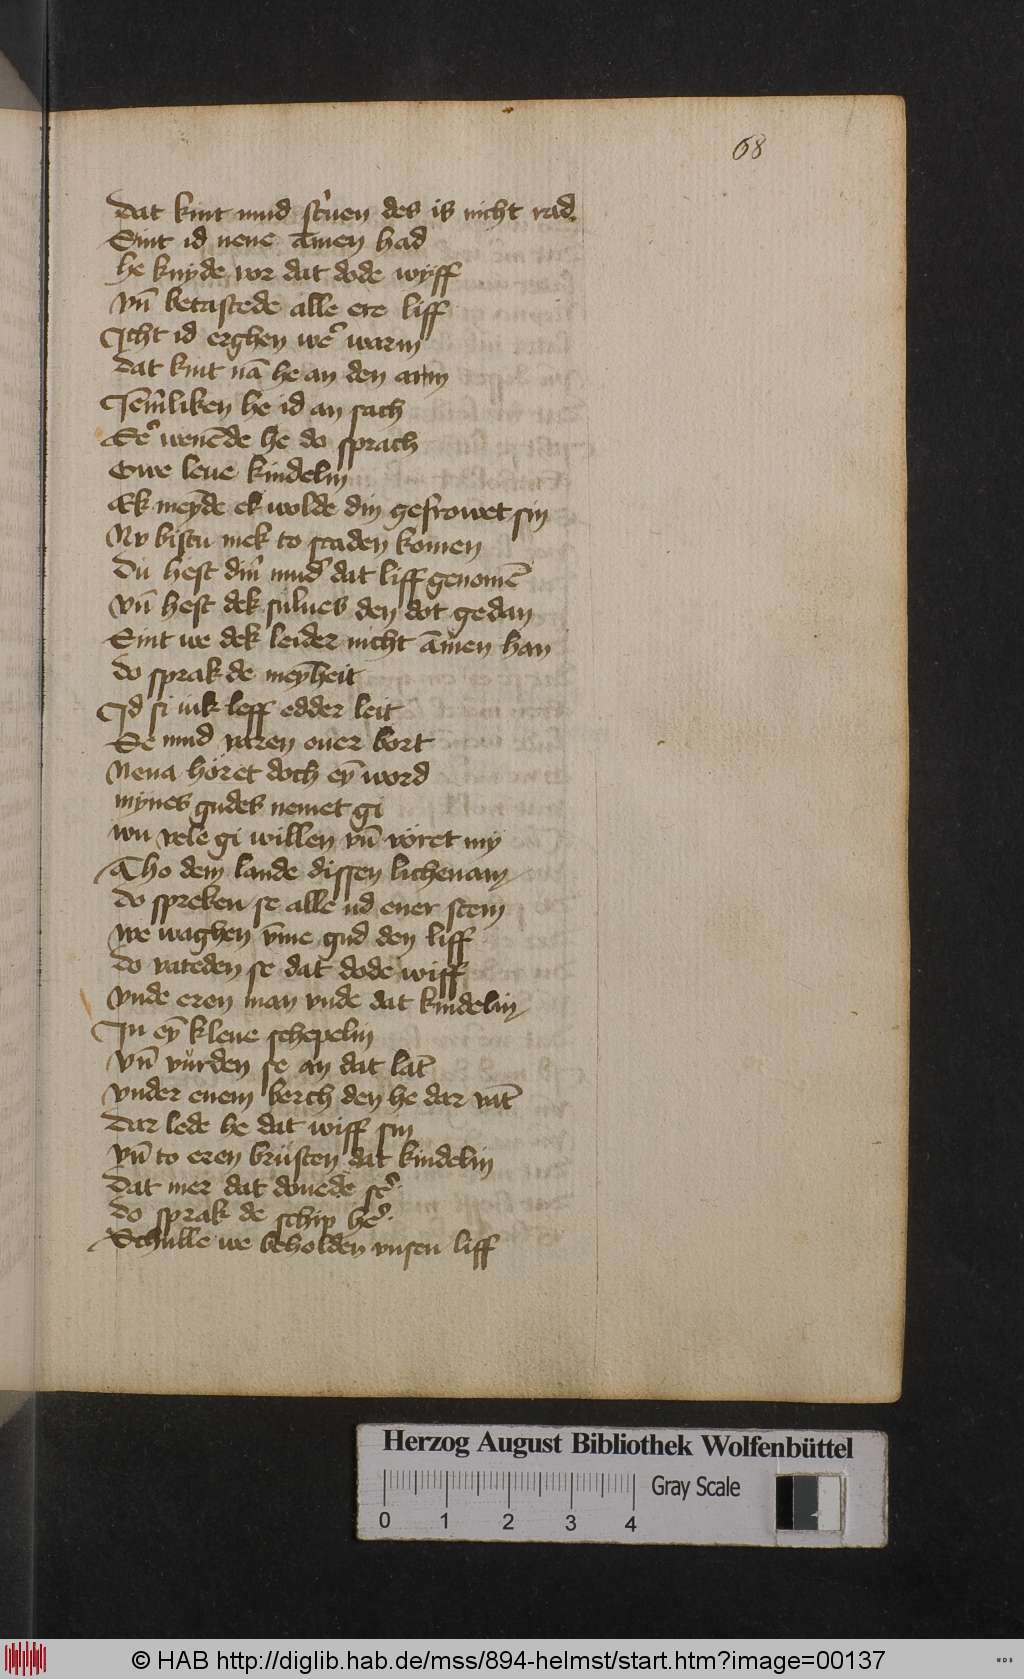 68
dat kint mud st'uen des is nicht rad
Sint id nene āmen had
he knyde vor dat dode wyff
vn̄ betastede alle ere liff
Icht id erghen we' warm
dat kint nā he an den arm
Jem̄liken he id an sach
Se' wenēde he do sprach
Owe leue kindelin
Ek meȳde ek wolde din gefrowet sin
Nv bistu mek to scaden komen
du hest din' mud' dat liff genomē
vn̄ hest dek sulues den dot gedan
Sint we dek leider nicht āmen han
do sprak de meȳheit
Id si iuk leff edder leit
Se mud varen ouer bort
Nena höret doch eȳ word
mynes gudes nemet gi
wu vele gi willen vn̄ vöret my
Tho dem lande dissen lichenam
do spreken se alle ud ener stem
we waghen v̄me gud den liff
do vateden se dat dode wiff
vnde eren man vnde dat kindelin
In eȳ klene schepelin
vn̄ vůrden se an dat lāt
vnder enem berch den he dar vāt
dar lede he dat wiff sin
vn̄ to eren brüsten dat kindelin
dat mer dat douede se'
do sprak de schip he'
Schulle we beholden vnsen liff
Herzog August Bibliothek Wolfenbüttel
Gray Scale
0 1 2 3 4
© HAB http://diglib.hab.de/mss/894-helmst/start.htm?image=00137